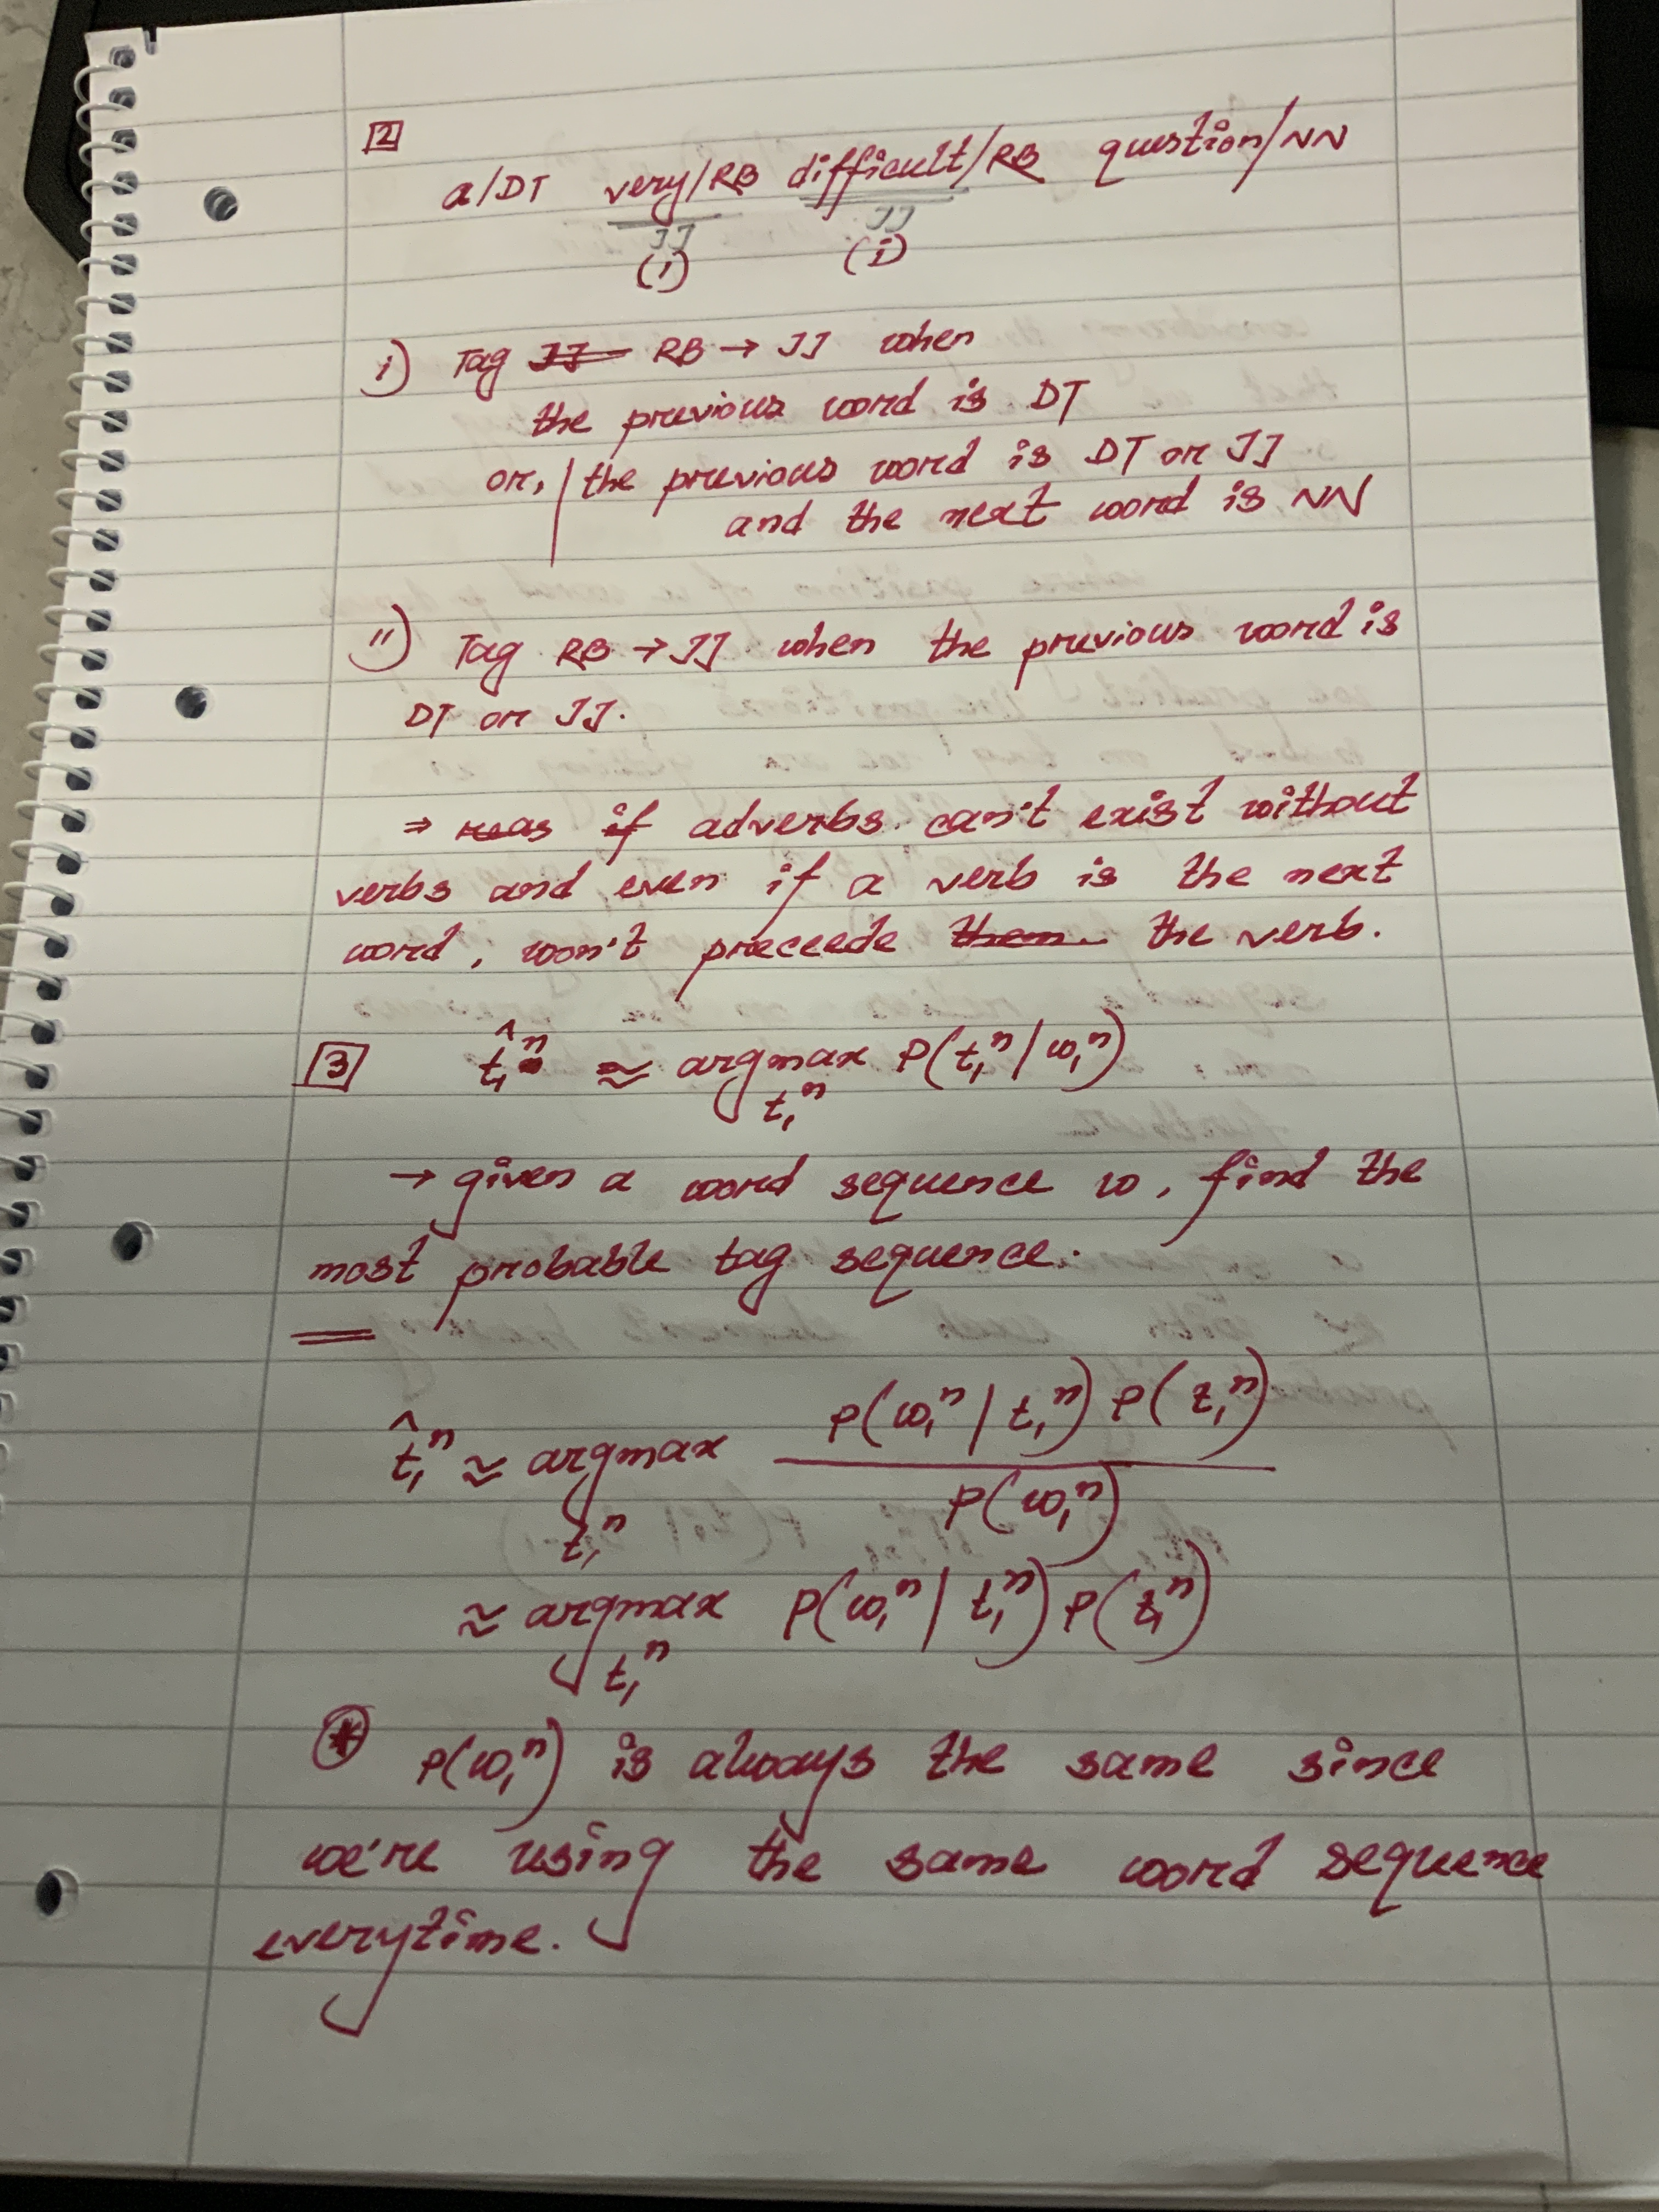 2
a/DT very/RB difficult/RB question/NN
JJ JJ
(i) (i)
i) Tag JJ RB → JJ when
the previous word is DT
or, / the previous word is DT or JJ
and the next word is NN
ii) Tag RB → JJ when the previous word is
DT or JJ.
⇒ as if adverbs can't exist without
verbs and even if a verb is the next
word, won't preceede them the verb.
3 t̂₁ⁿ ≈ argmax P(t₁ⁿ / w₁ⁿ)
t₁ⁿ
→ given a word sequence w, find the
most probable tag sequence.
P(w₁ⁿ / t₁ⁿ) P(t₁ⁿ)
t̂₁ⁿ ≈ argmax
P(w₁ⁿ)
t₁ⁿ
≈ argmax P(w₁ⁿ / t₁ⁿ) P(t₁ⁿ)
t₁ⁿ
* P(w₁ⁿ) is always the same since
we're using the same word sequence
everytime.